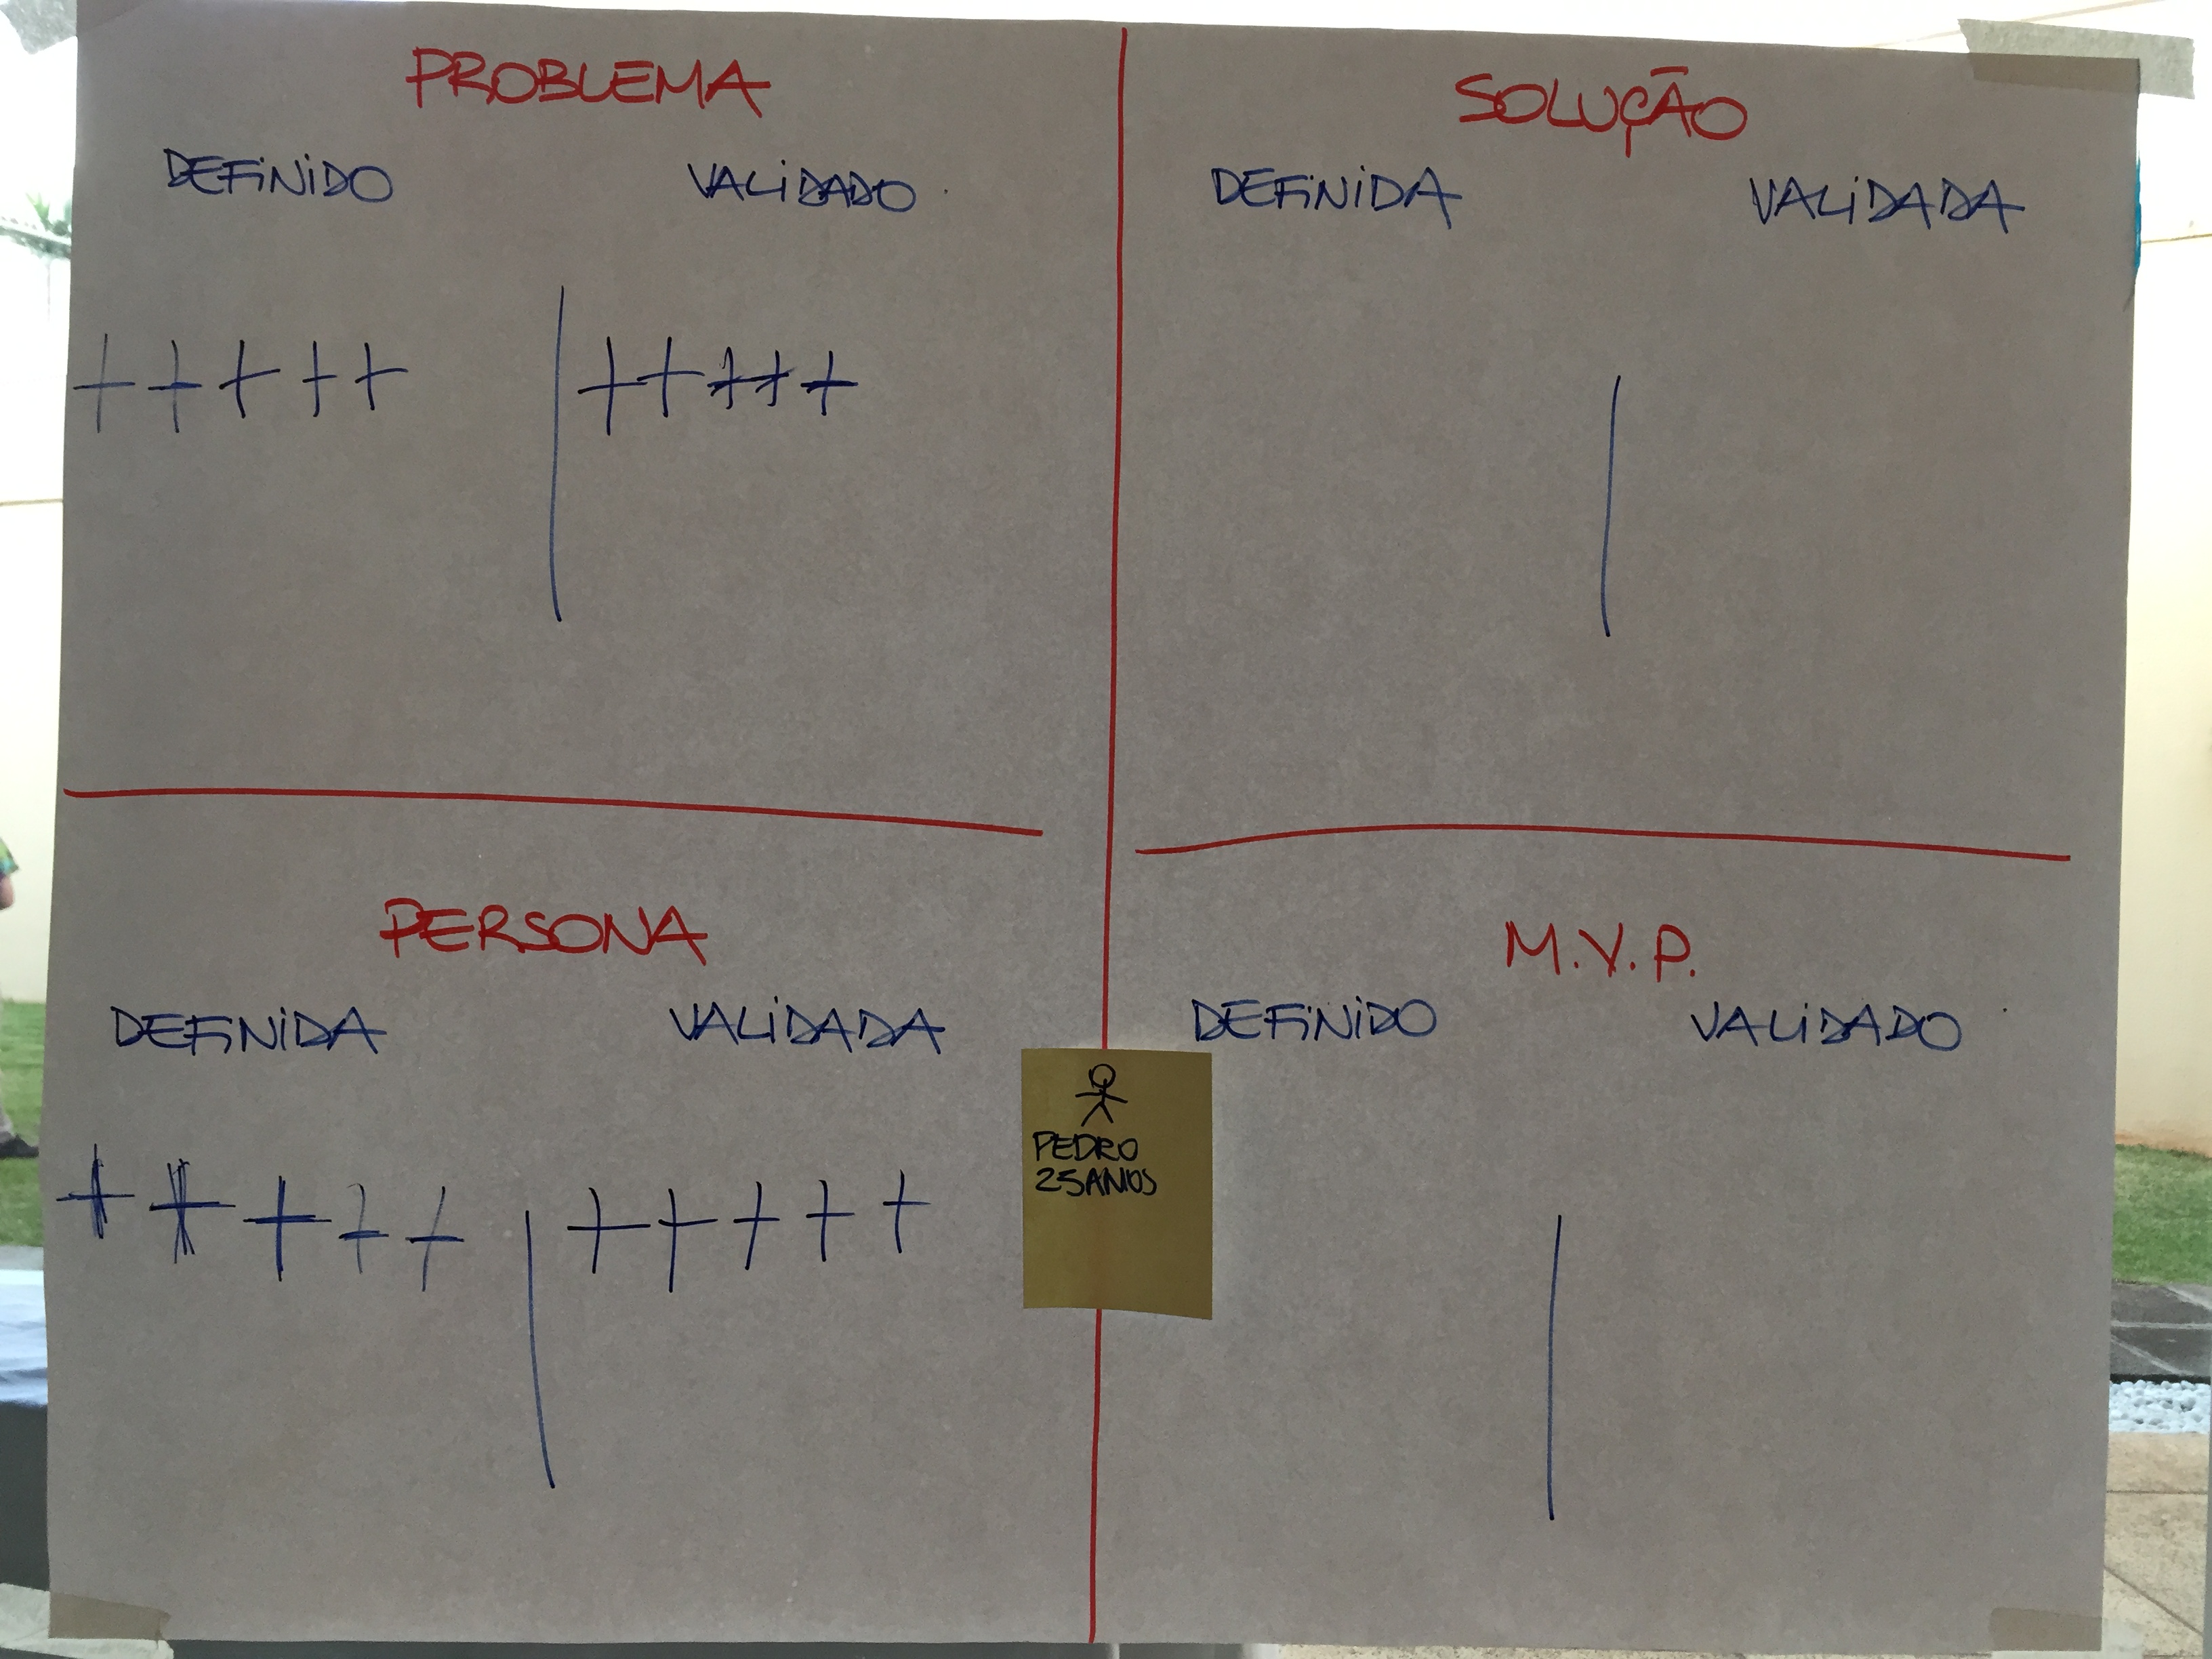 PROBLEMA
DEFINIDO VALIDADO
+ + + + + + + + + +
SOLUÇÃO
DEFINIDA VALIDADA
PERSONA
DEFINIDA VALIDADA
+ + + + + + + + + +
PEDRO
25 ANOS
M.V.P.
DEFINIDO VALIDADO